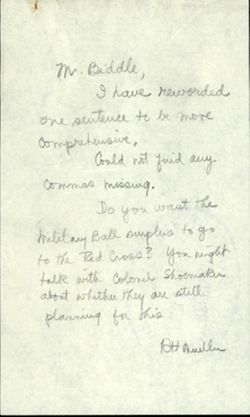 Mr. Biddle,
I have reworded
one sentence to be more
comprehensive.
Could not find any
commas missing.
Do you want the
Military Ball surplus to go
to the Red Cross? You might
talk with Colonel Shoemaker
about whether they are still
planning for this